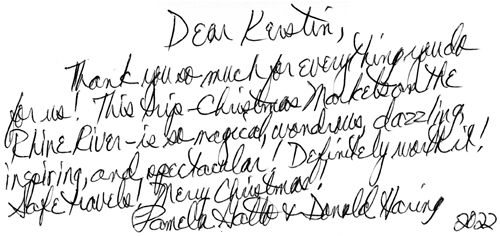 Dear Kerstin,
Thank you so much for everything you do
for us! This trip - Christmas Markets on the
Rhine River - is so magical, wondrous, dazzling,
inspiring, and spectacular! Definitely work it!
Safe travels! Merry Christmas!
Pamela & Donald Haring 2022